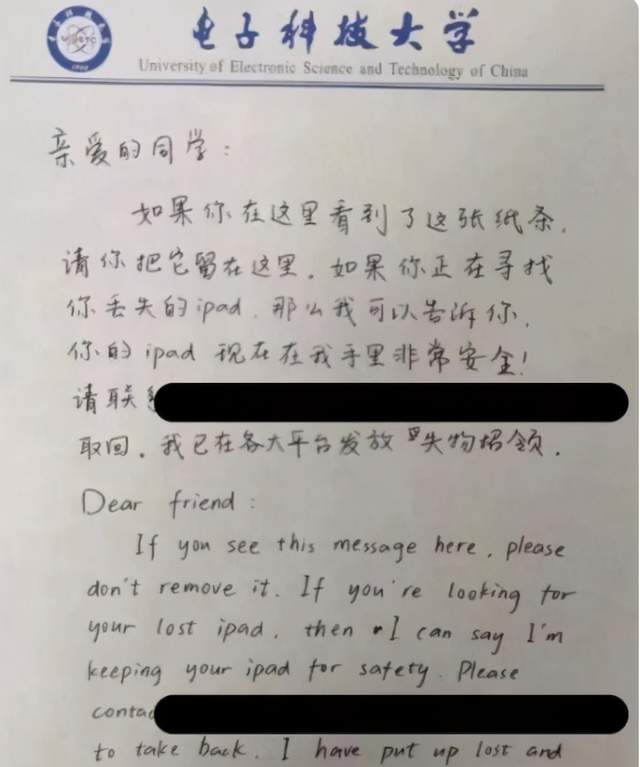 电子科技大学
University of Electronic Science and Technology of China
亲爱的同学：
如果你在这里看到了这张纸条，
请你把它留在这里。如果你正在寻找
你丢失的ipad，那么我可以告诉你，
你的ipad 现在在我手里非常安全！
请联
取回。我已在各大平台发放 失物招领.
Dear friend:
If you see this message here, please
don't remove it. If you're looking for
your lost ipad, then I can say I'm
keeping your ipad for safety. Please
contac
to take back. I have put up lost and